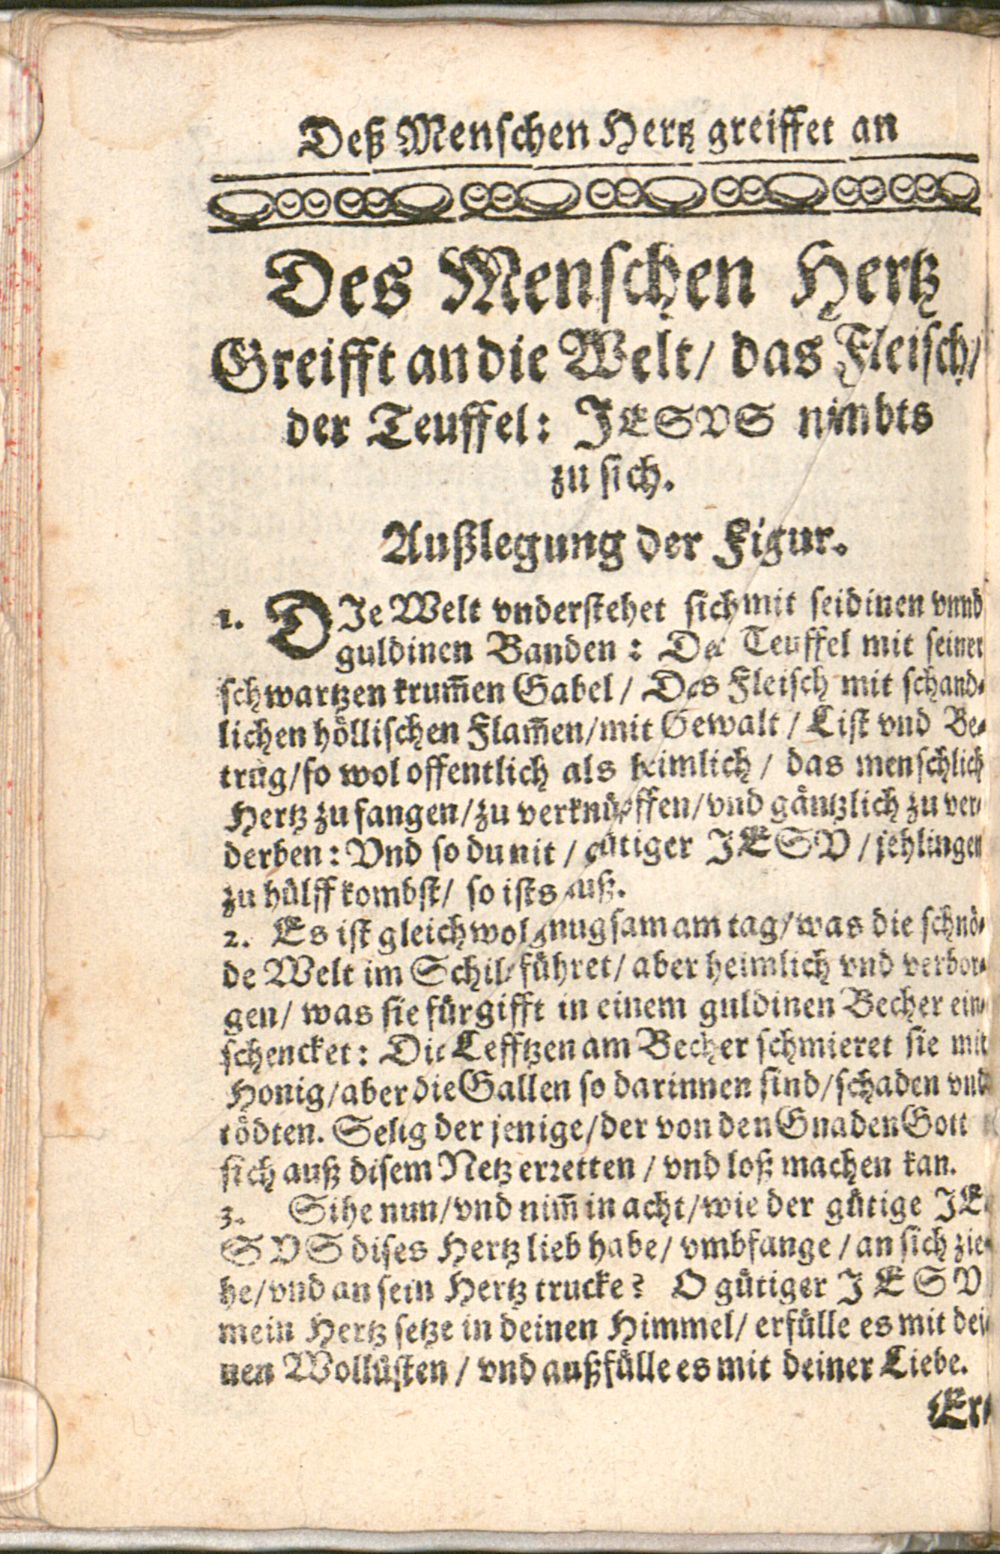 Deß Menschen Hertz greiffet an
Des Menschen Hertz
Greifft an die Welt/ das Fleisch/
der Teuffel: JESVS nimbts
zu sich.
Außlegung der Figur.
1. DJe Welt vnderstehet sich mit seidinen vnnd
guldinen Banden: Der Teuffel mit seiner
schwartzen krum̄en Gabel/ Das Fleisch mit schand-
lichen höllischen Flam̄en/mit Gewalt/ List vnd Be-
trug/so wol offentlich als heimlich/ das menschlich
Hertz zu fangen/zu verknüpffen/vnd gäntzlich zu ver-
derben: Vnd so du nit/ gütiger JESV/ jehlingen
zu hülff kombst/ so ists auß.
2. Es ist gleichwol gnugsam am tag/was die schnö-
de Welt im Schilt führet/ aber heimlich vnd verbor-
gen/ was sie für gifft in einem guldinen Becher ein-
schencket: Die Lefftzen am Becher schmieret sie mit
Honig/aber die Gallen so darinnen sind/schaden vnd
tödten. Selig der jenige/der von den Gnaden Gott
sich auß disem Netz erretten/ vnd loß machen kan.
3. Sihe nun/vnd nim̄ in acht/wie der gütige JE-
SVS dises Hertz lieb habe/ vmbfange/ an sich zie-
he/vnd an sein Hertz trucke? O gütiger JESV
mein Hertz setze in deinen Himmel/ erfülle es mit dei-
nen Wollüsten/ vnd außfülle es mit deiner Liebe.
Er-